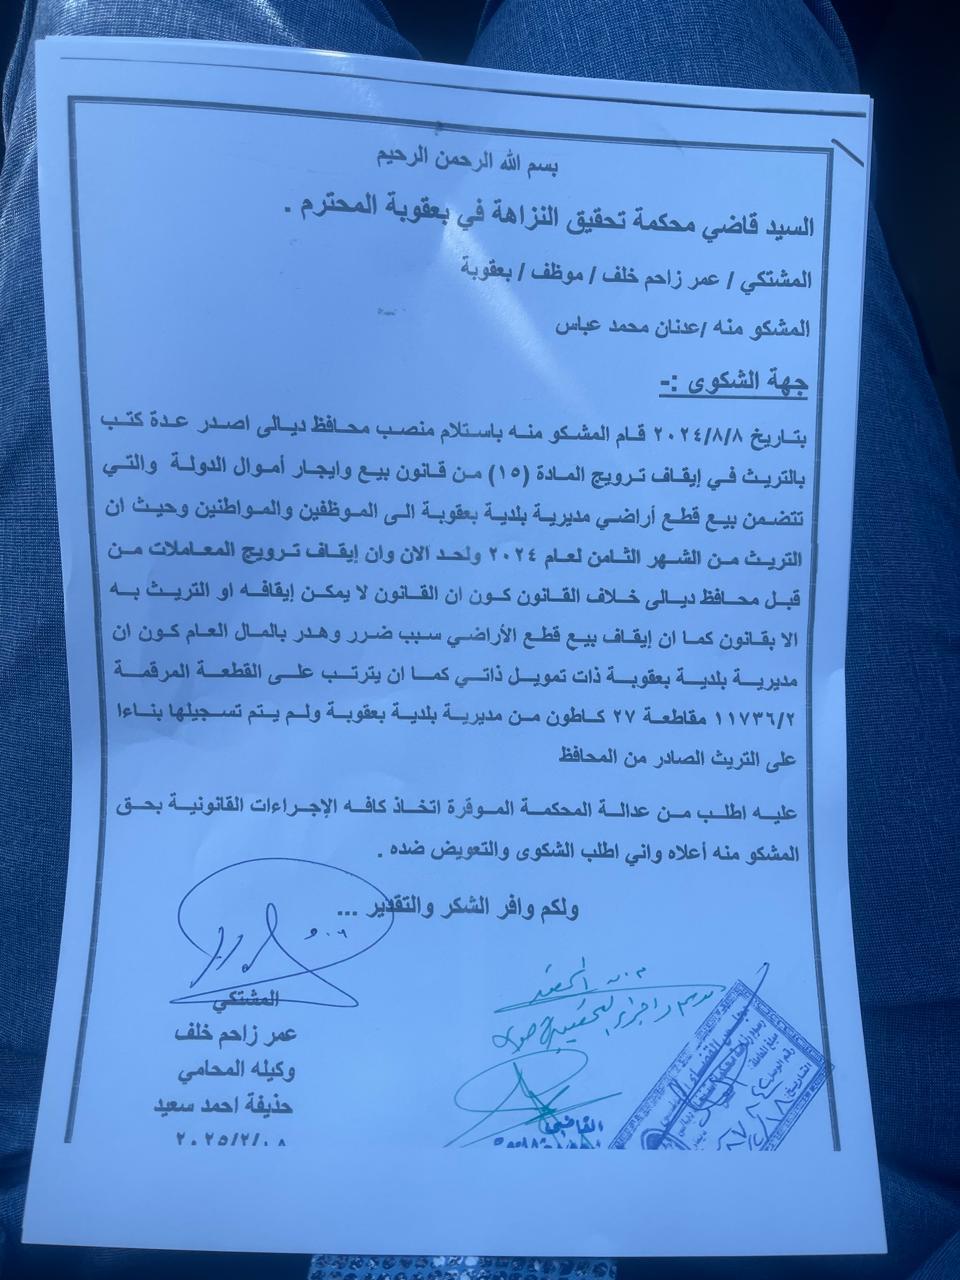 بسم الله الرحمن الرحيم
السيد قاضي محكمة تحقيق النزاهة في بعقوبة المحترم .
المشتكي / عمر زاحم خلف / موظف / بعقوبة
المشكو منه /عدنان محمد عباس
جهة الشكوى :-
بتاريخ ٢٠٢٤/٨/٨ قام المشكو منه باستلام منصب محافظ ديالى اصدر عدة كتب
بالتريث في إيقاف ترويج المادة (١٥) من قانون بيع وايجار أموال الدولة والتي
تتضمن بيع قطع أراضي مديرية بلدية بعقوبة الى الموظفين والمواطنين وحيث ان
التريث من الشهر الثامن لعام ٢٠٢٤ ولحد الان وان إيقاف ترويج المعاملات من
قبل محافظ ديالى خلاف القانون كون ان القانون لا يمكن إيقافه او التريث به
الا بقانون كما ان إيقاف بيع قطع الأراضي سبب ضرر وهدر بالمال العام كون ان
مديرية بلدية بعقوبة ذات تمويل ذاتي كما ان يترتب على القطعة المرقمة
١١٧٣٦/٢ مقاطعة ٢٧ كاطون من مديرية بلدية بعقوبة ولم يتم تسجيلها بناءا
على التريث الصادر من المحافظ
عليه اطلب من عدالة المحكمة الموقرة اتخاذ كافه الإجراءات القانونية بحق
المشكو منه أعلاه واني اطلب الشكوى والتعويض ضده .
ولكم وافر الشكر والتقدير ...
المشتكي
عمر زاحم خلف
وكيله المحامي
حذيفة احمد سعيد
٢٠٢٥/٢/٠٨
القاضي
مجلس القضاء
مبلغ الفئة
رقم الوصل
التاريخ